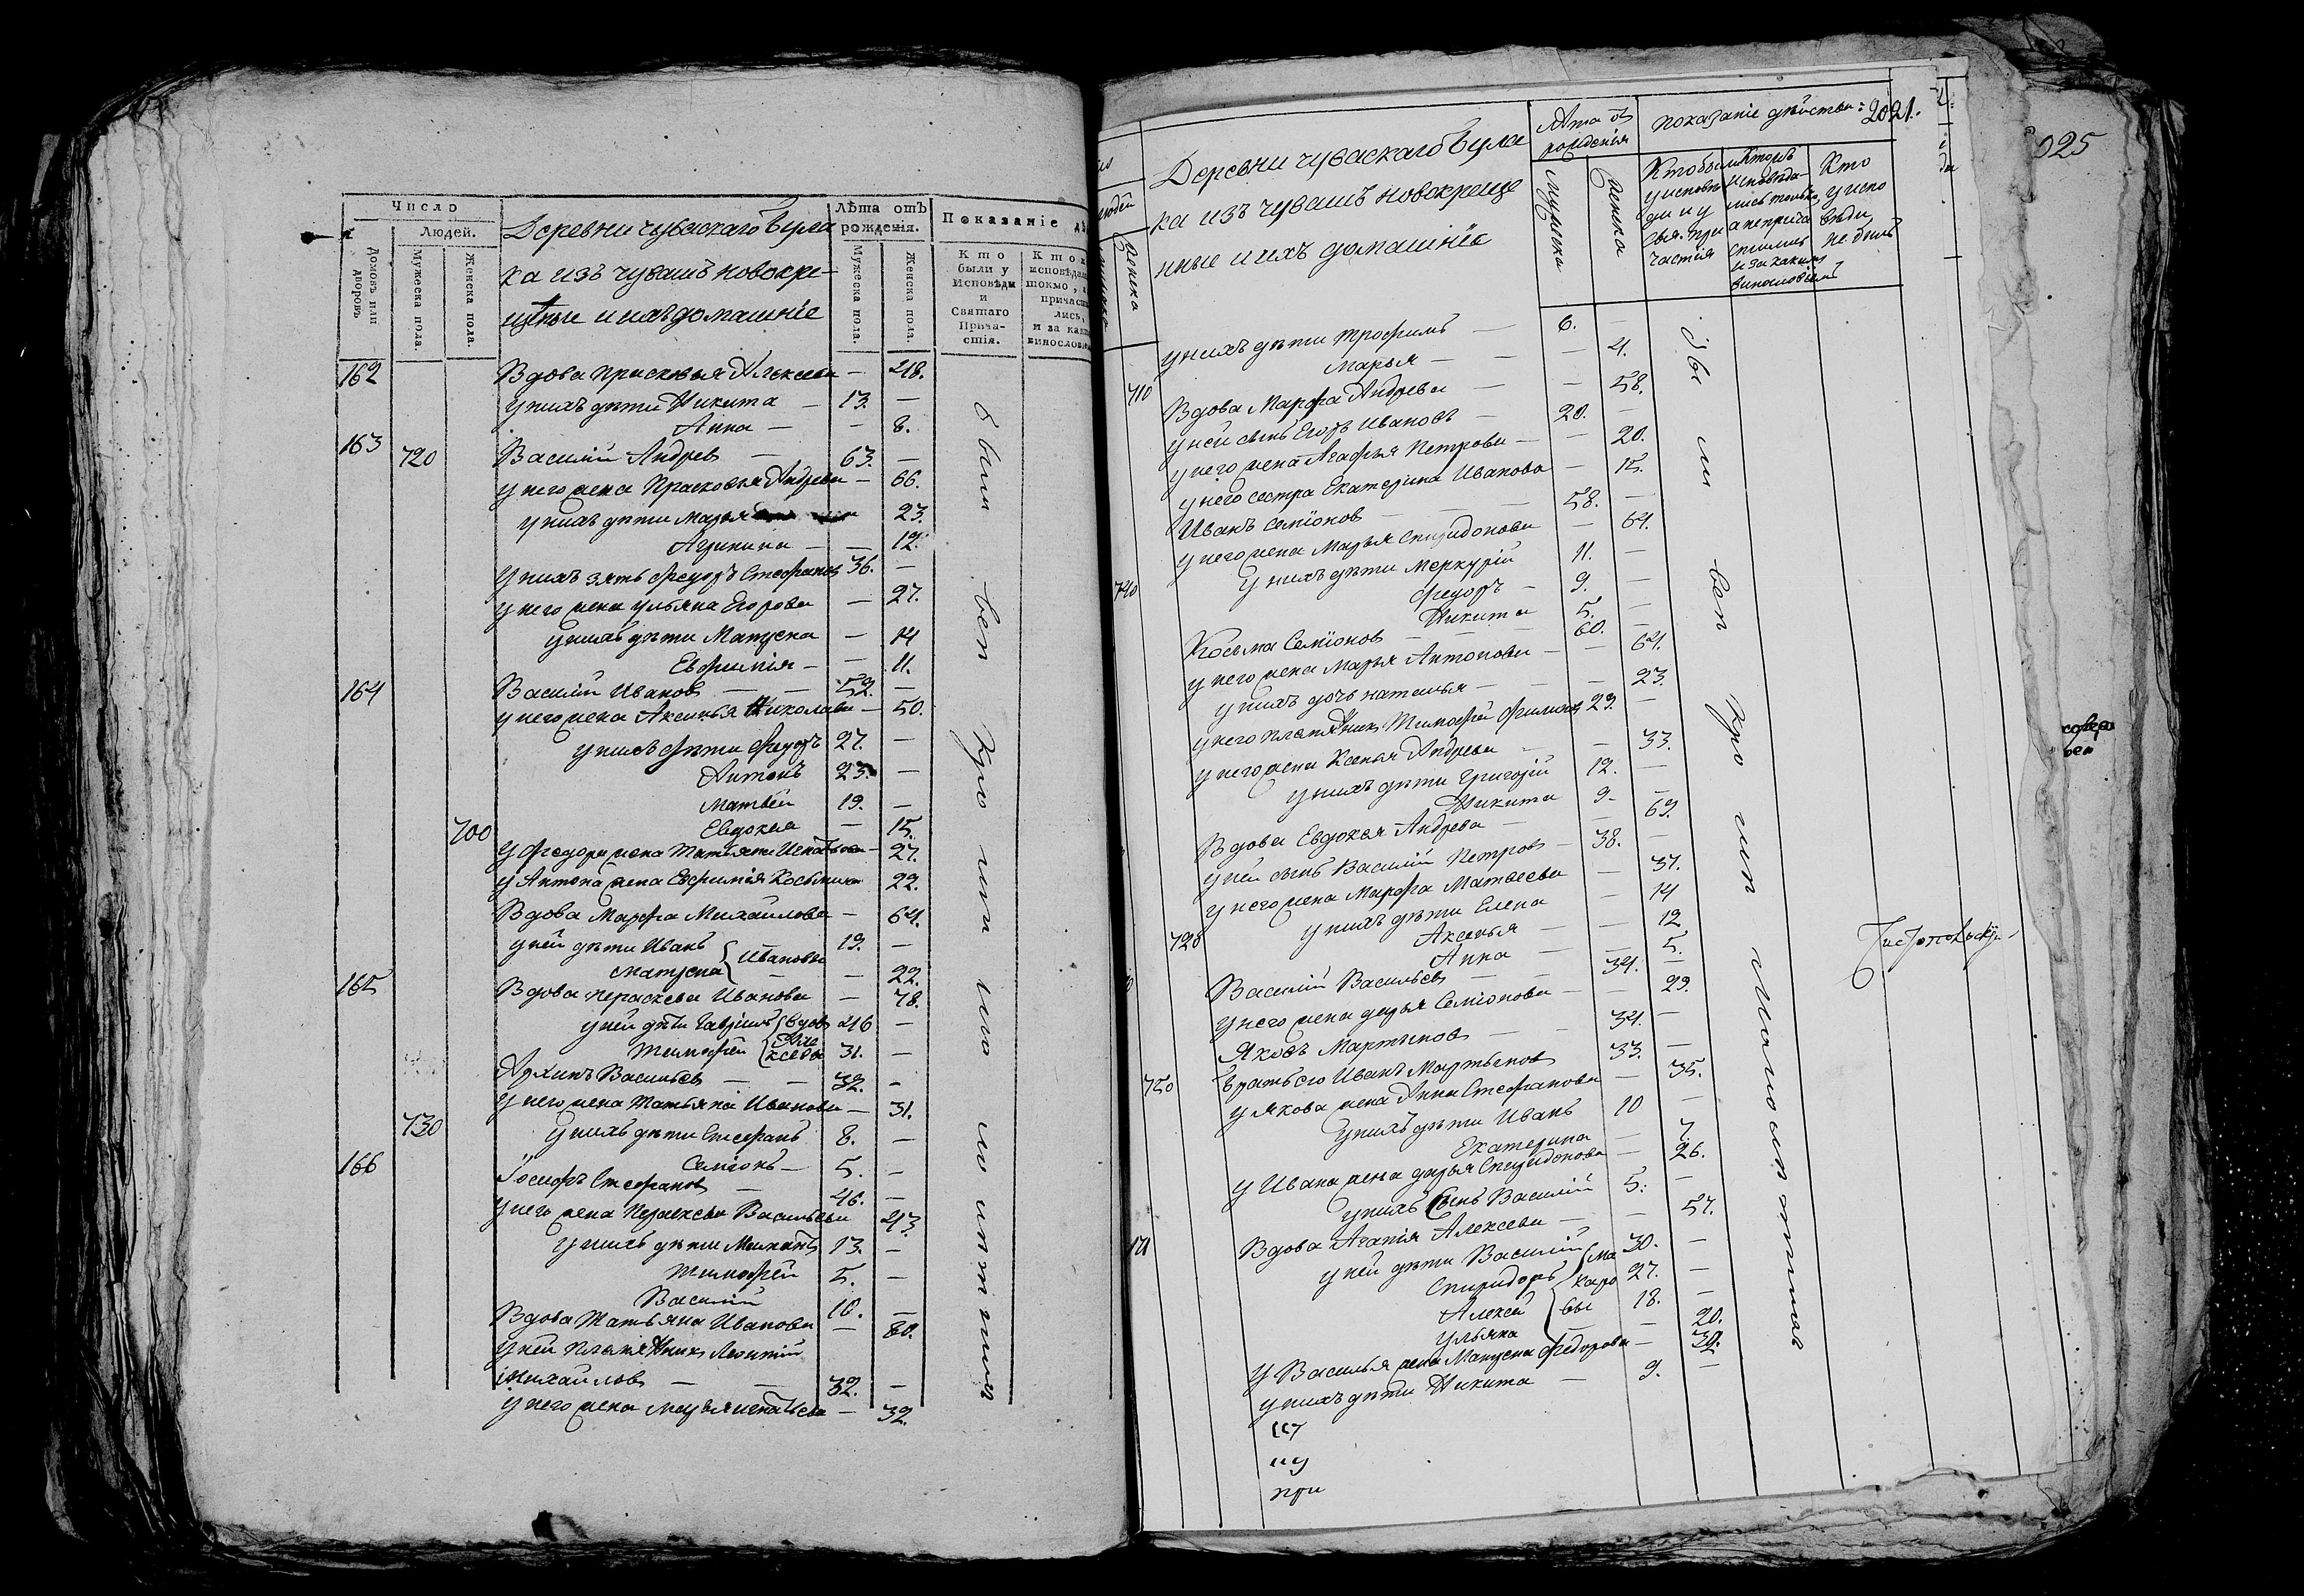 Число
Людей.
Домовъ или дворовъ
Мужеска пола.
Женска пола.
Деревни чуваскаго Була
ка изъ чувашъ новокре-
щеные и ихъ домашніе
Лѣта отъ рожденія.
Мужеска пола.
Женска пола.
Показаніе дѣ
Кто были у Исповѣди и Святаго Прича-стія.
162 Вдова Прасковья Алексеева — 48.
у нихъ дѣти Никита — 13. —
Анна — — 8.
163 720 Василій Андреев — 63. —
у него жена Прасковья Андреева — 66.
у нихъ дѣти Марья 23.
Агрипина — — 12.
у нихъ зять Федоръ Стефанов 36. —
у него жена Ульяна Егорова — 27.
у нихъ дѣти Матрена — 14
Евфимія — — 11.
164 Василій Иванов — — 52. —
у него жена Аксинья Николаева — 50.
у нихъ дѣти Федоръ 27. —
Антонъ 23. —
Матвей 19. —
700 Евдокея — 15.
у Федора жена Татьяна Игнатьева — 27.
у Антона жена Евфимія Косьмина 22.
Вдова Марфа Михаилова — 64.
у ней дѣти Иванъ 19. —
Матрена Ивановы — 22.
165 Вдова Параскева Иванова — 78.
у ней дѣти Гаврилъ вдовъ 46 —
Тимофей Алексеевы 31. —
Архипъ Васильев — — 32. —
у него жена Татьяна Иванова — 31.
730 у нихъ дѣти Стефанъ 8. —
Семіонъ — 5. —
166 Іосифъ Стефанов — 46. —
у него жена Параскева Васильева 43.
у нихъ дѣти 13. —
Тимофей 5. —
Василій 10. —
Вдова Татьяна Иванова — 60.
у ней племянникъ Леонтій
Михаилов — — 32. —
у него жена Марья Игнатьева — 32.
были вси
Деревни чуваскаго Була
ка изъ чувашъ новокреще
нные и ихъ домашніе
Лѣта отъ рожденія
Мужеска
Женска
показаніе дѣйства: 2021.
Кто были у исповѣди и у свя. причастія
Кто исповѣдались только, а не причастились и за какимъ винословіемъ
Кто у исповѣди не былъ
025
у нихъ дѣти Трофимъ — 6. —
Марья — — — 4.
710 Вдова Марфа Андреева — — 58.
у ней сынъ Егоръ Иванов — 20. —
у него жена Агафья Петрова — — 20.
у него сестра Екатерина Иванова — 15.
Иванъ Семіонов — — 58. —
у него жена Марья Спиридонова — 64.
740 у нихъ дѣти Меркурій 11. —
Федоръ — 9. —
Никита 5. —
Косьма Семіонов — — 60. —
у него жена Марья Антонова — — 64.
у нихъ дочь Наталья — — — 23.
у него племянникъ Тимофей Филипов 29. —
у него жена Ксенья Андреева — — 33.
у нихъ дѣти Григорій 12. —
Никита 9. —
Вдова Евдокея Андреева — — 69.
у ней сынъ Василій Петров — 38. —
у него жена Марфа Матвеева — 37.
720 у нихъ дѣти Елена — 14
Аксинья — — 12
Анна — — 5.
Василій Васильев — — 34. —
у него жена Дарья Семіонова — — 29.
Яковъ Мартынов — 34. —
750 братъ его Иванъ Мартынов 33. —
у Якова жена Анна Стефанова — 35.
у нихъ дѣти Иванъ 10 —
Екатерина — 7.
у Ивана жена Дарья Спиридонова — 26.
у нихъ сынъ Василій 5. —
171 Вдова Агапія Алексеева — — 57.
у ней дѣти Василій 30. —
Спиридонъ Макаро 27. —
Алексей вы 18. —
Ульяна — 20.
у Василья жена Матрена Федорова — 32.
у нихъ дѣти Никита — 9. —
были вси